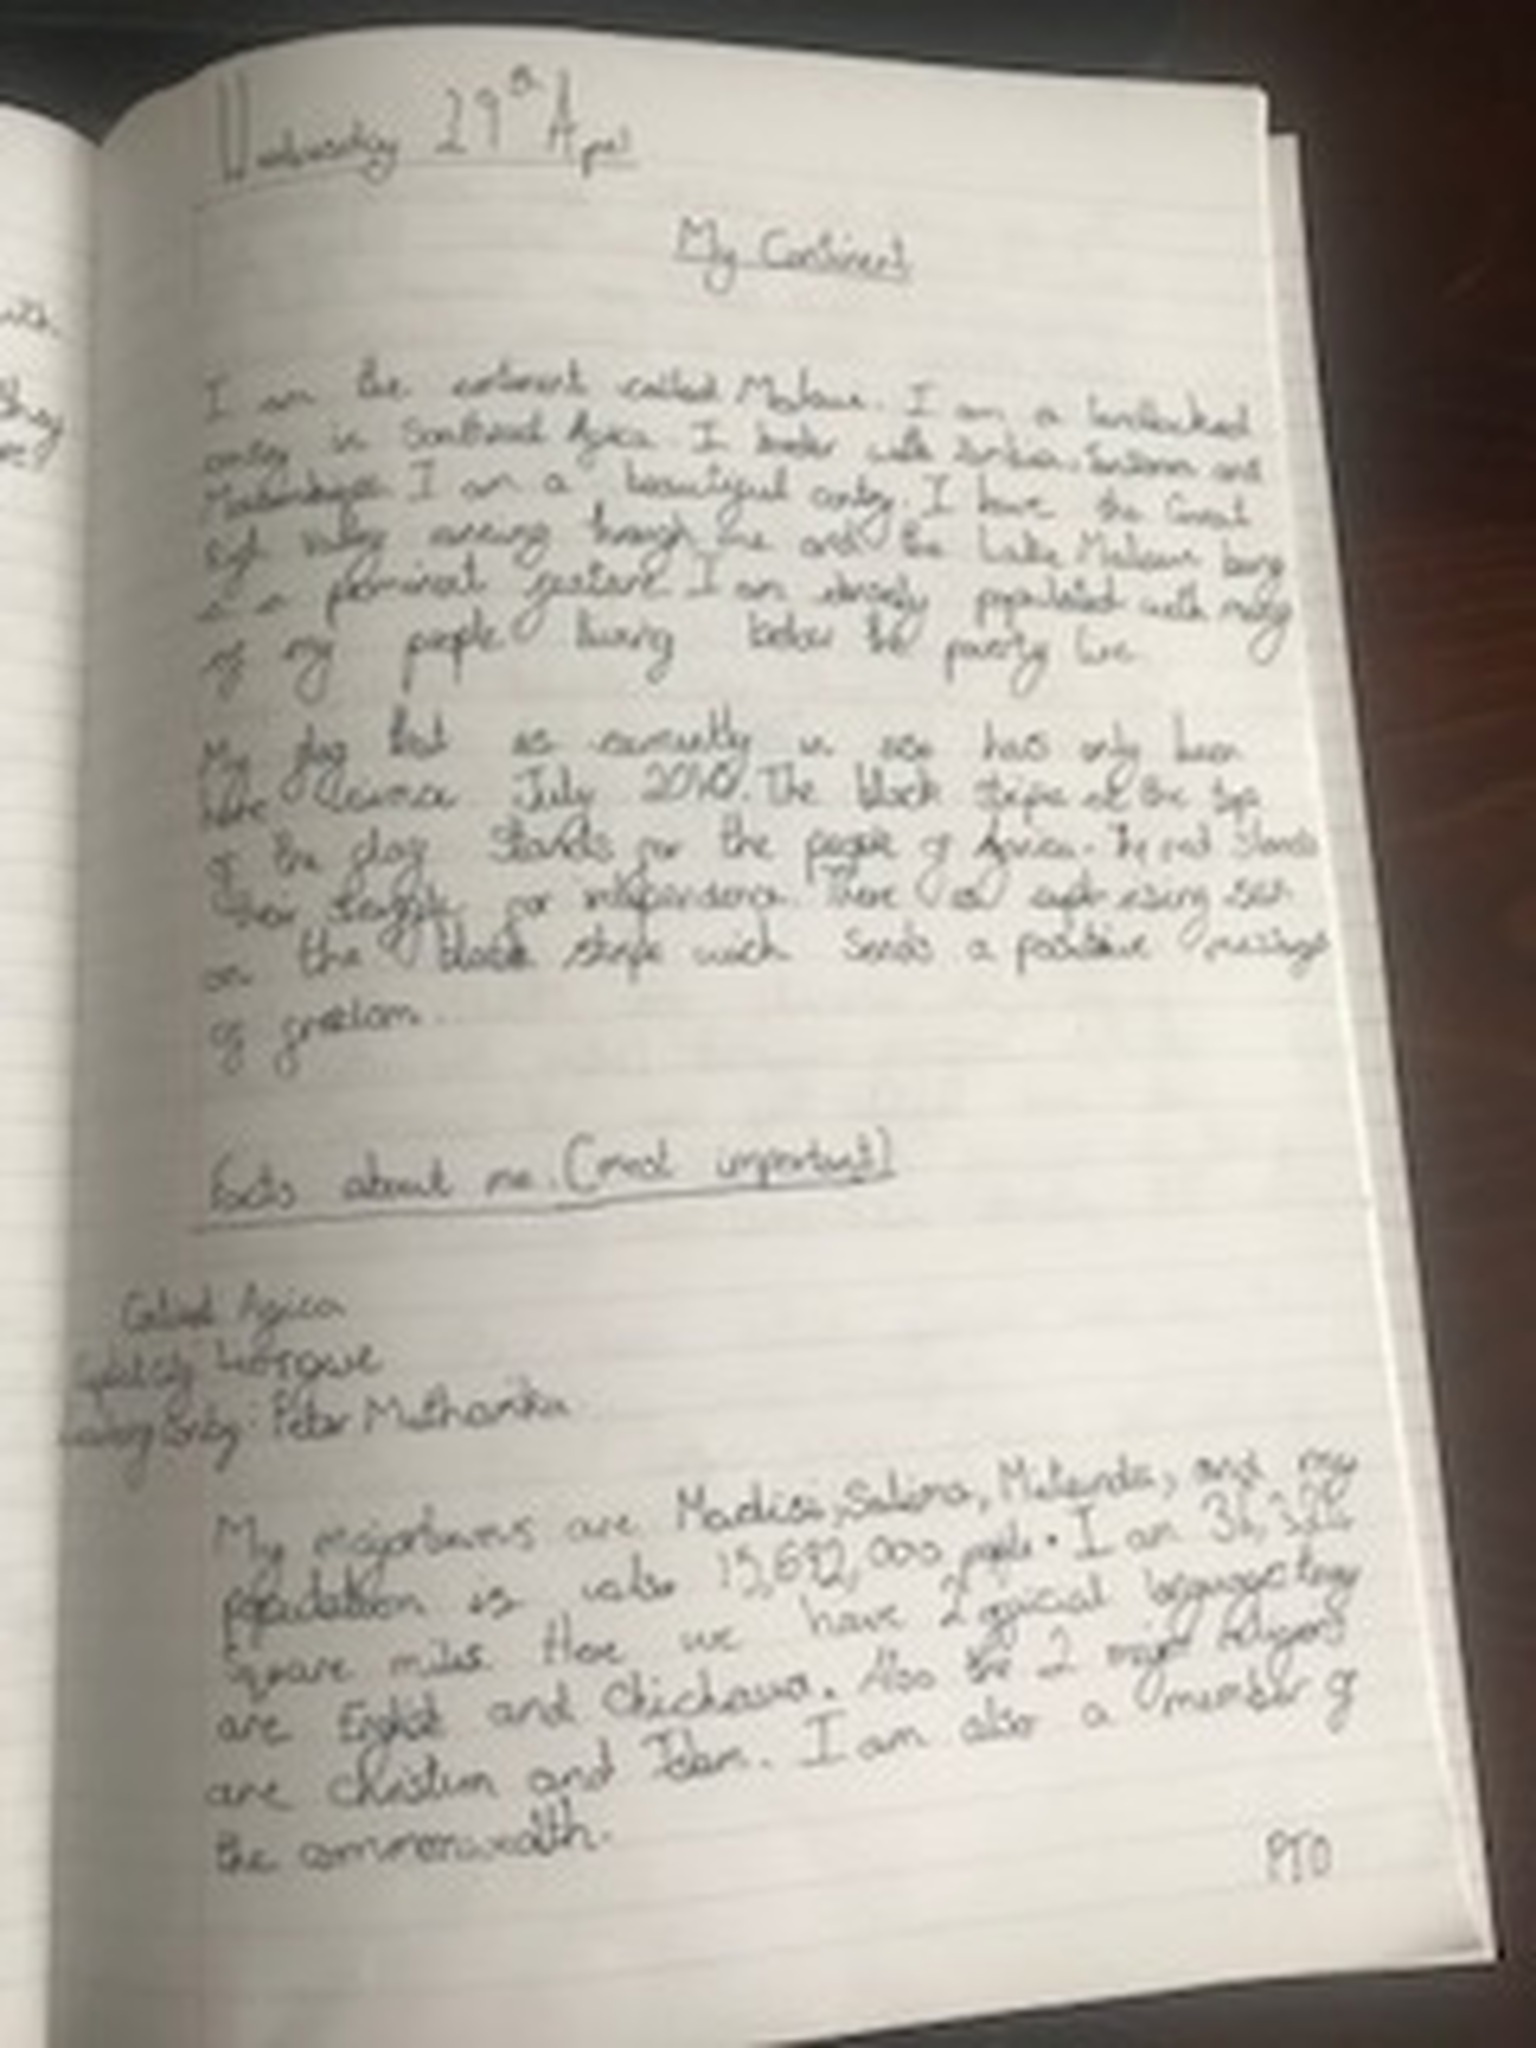 Wednesday 29th April
My Continent
I am the continent called Malawi. I am a landlocked
in Southeast Africa. I border with Zambia, and
I am a beautiful contry. I have the Great
Rift Valley running through me and the Lake Malawi being
a prominent feature. I am densely populated with many
of my people living below the poverty line.
My flag that is currently in use has only been
here since July 2010. The black stripe at the top
of the flag stands for the people of Africa. The red stands
their struggle for independence. There is a rising sun
on the black stripe wich sends a positive message
of freedom.
Facts about me. (most important)
Africa
city
Peter Mutharika
My major towns are Madisi, Salima, and my
population is 15,692,000 people. I am
square miles. Here we have 2 official language they
are English and Chichewa. Also the 2 major religions
are christian and Islam. I am also a member of
the commonwealth.
PTO